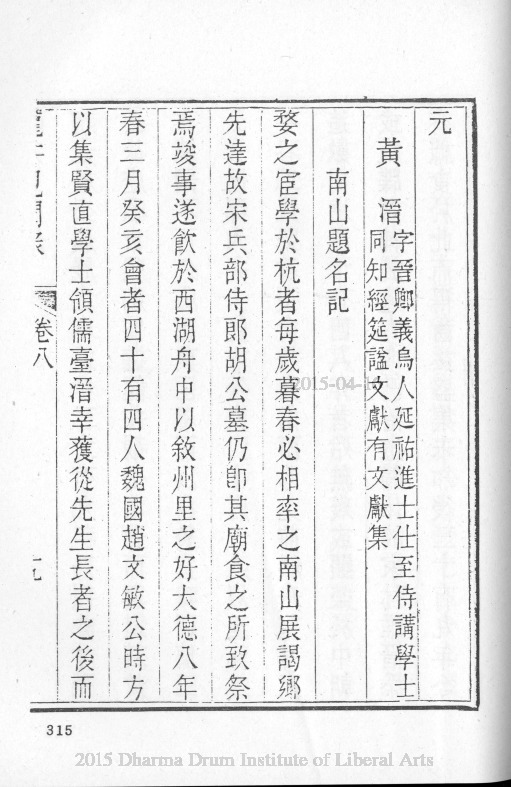 元
黃溍字晉卿義烏人延祐進士仕至侍講學士
同知經筵謚文獻有文獻集
南山題名記
婺之宦學於杭者每歲暮春必相率之南山展謁鄉
先達故宋兵部侍郎胡公墓仍卽其廟食之所致祭
焉竣事遂飮於西湖舟中以敘州里之好大德八年
春三月癸亥會者四十有四人魏國趙文敏公時方
以集賢直學士領儒臺溍幸獲從先生長者之後而
卷八
315
2015-04-1
2015 Dharma Drum Institute of Liberal Arts